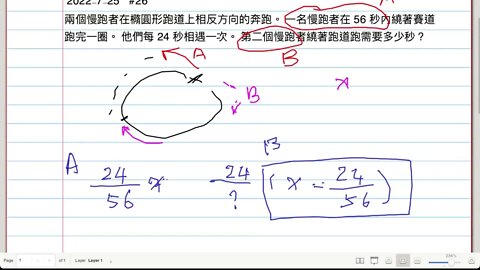 2022-7-25 #26
兩個慢跑者在橢圓形跑道上相反方向的奔跑。 一名慢跑者在 56 秒內繞著賽道
跑完一圈。 他們每 24 秒相遇一次。 第二個慢跑者繞著跑道跑需要多少秒？
A
B
B
x
B
A 24/56 x 24/? (x - 24/56)
Page 1 of 1 Layer: Layer 1